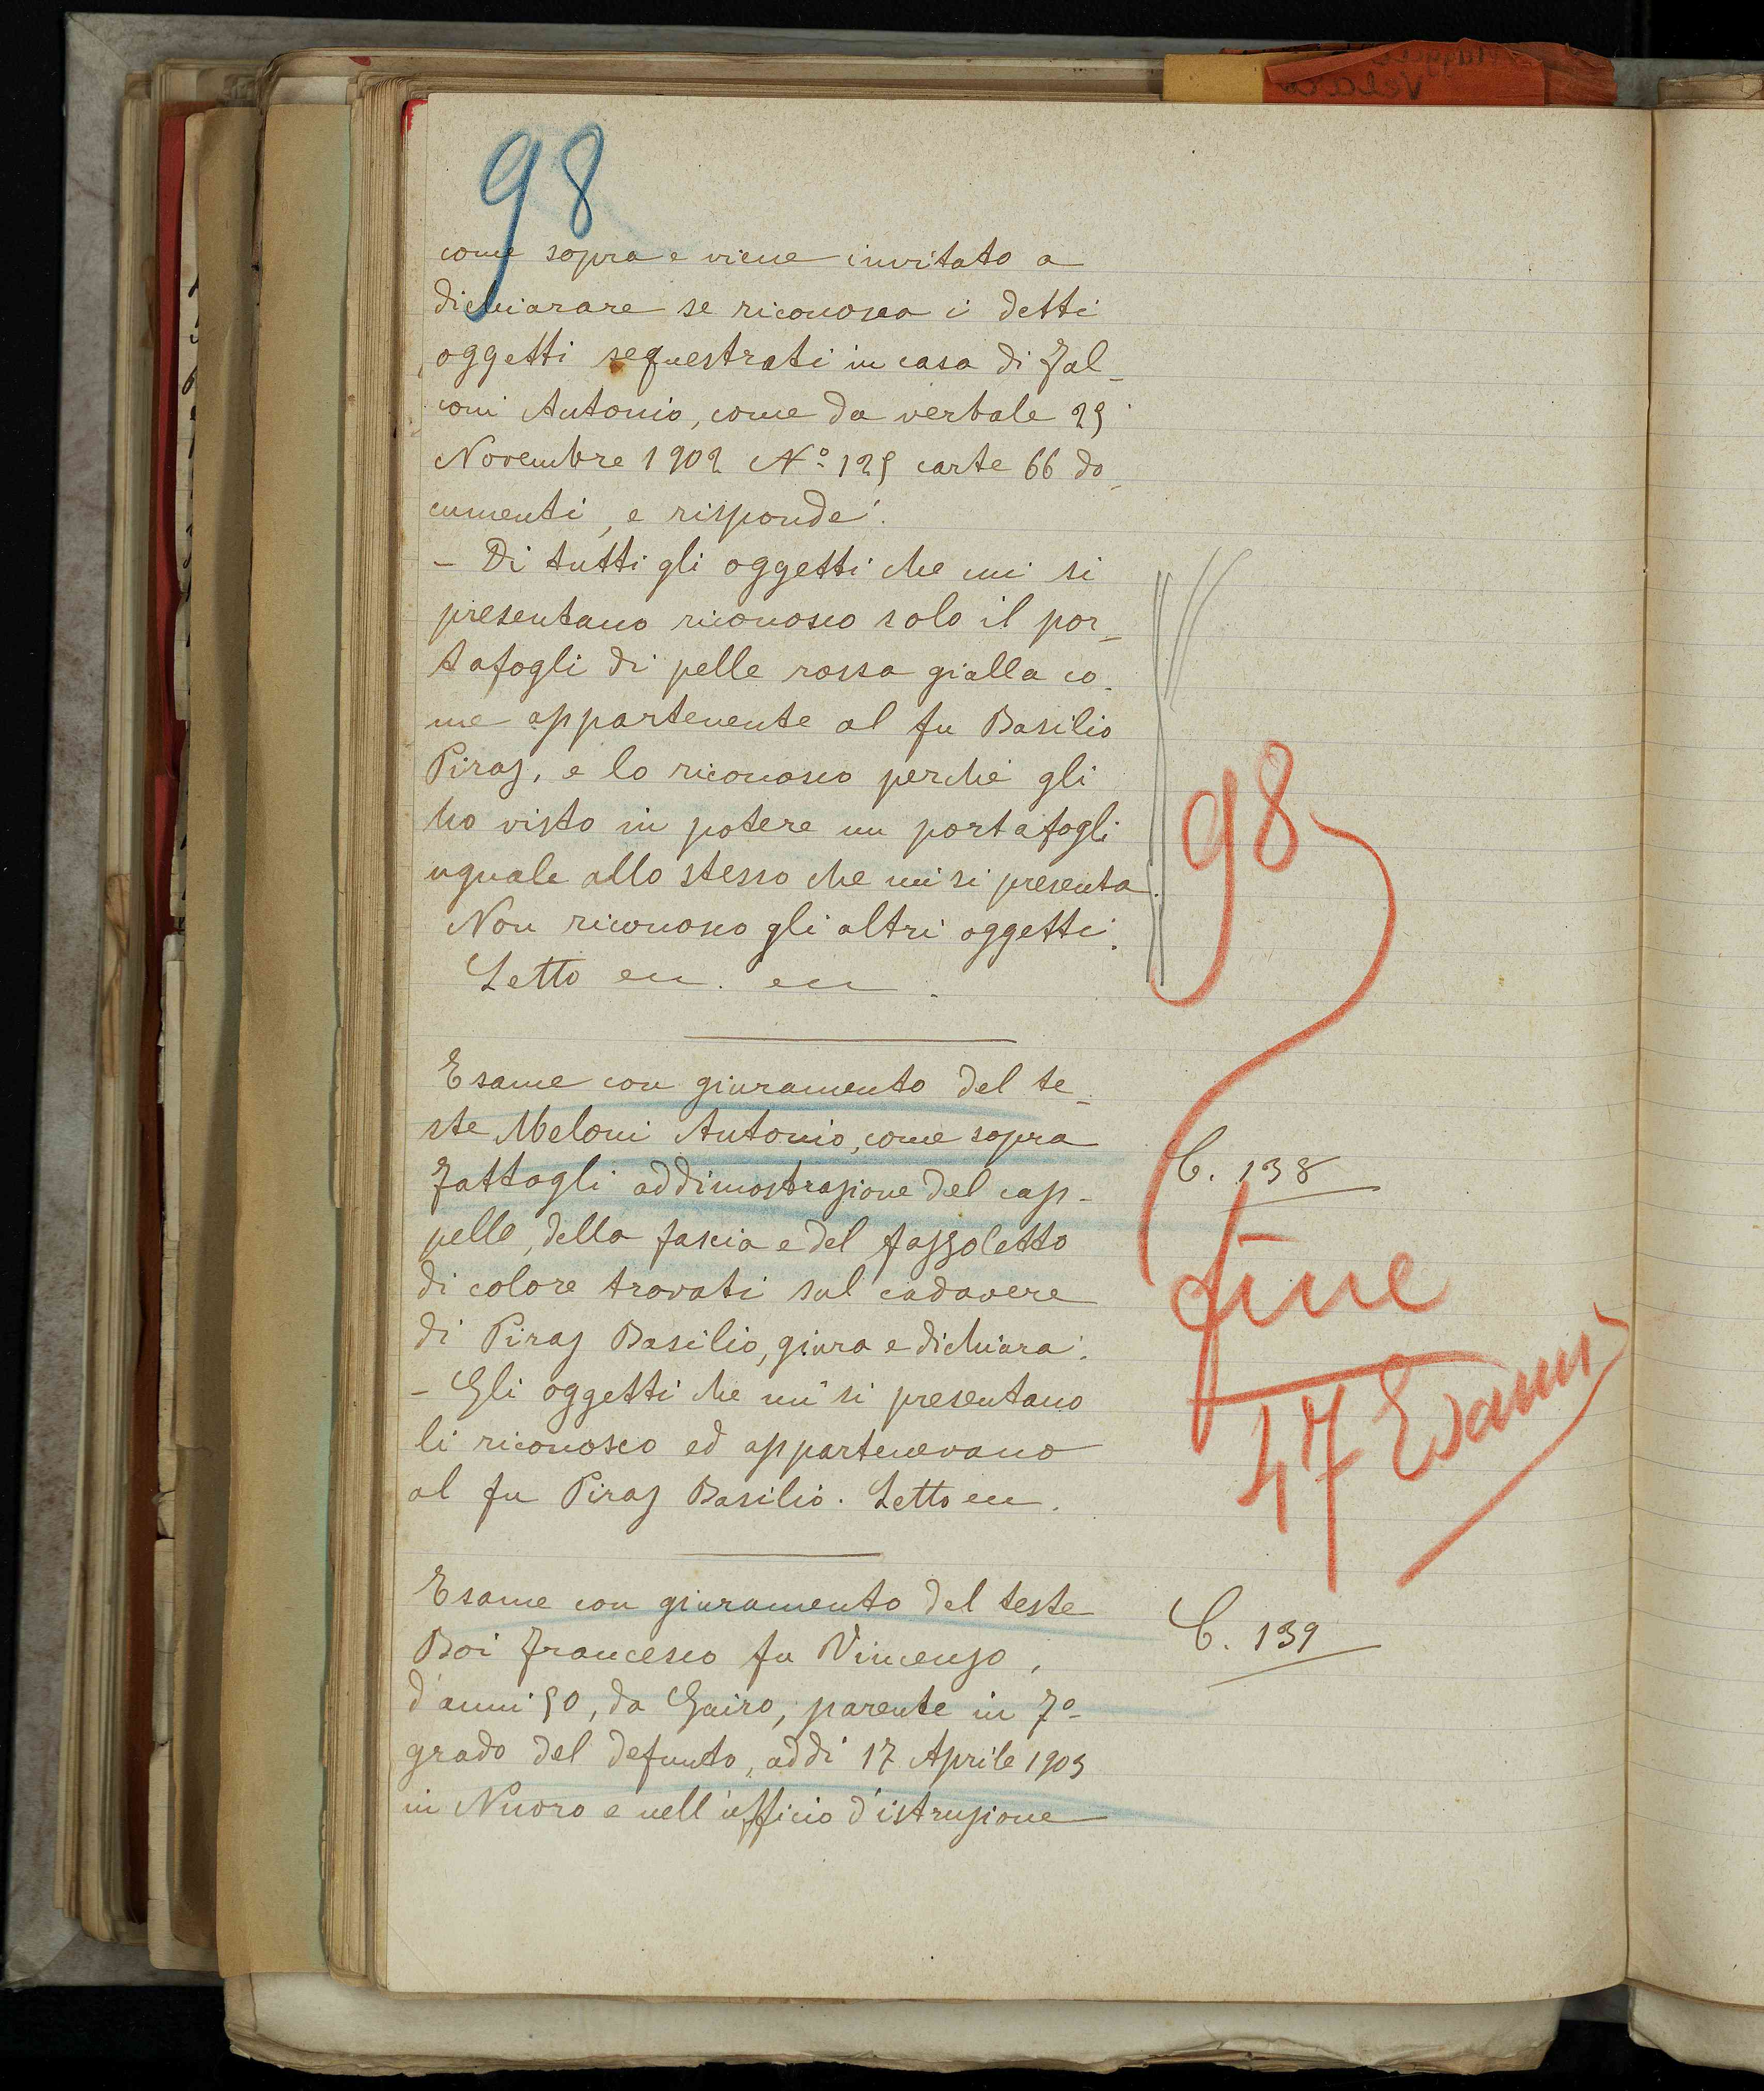 98
come sopra e viene invitato a
dichiarare se riconosca i detti
oggetti sequestrati in casa di Fal-
coni Antonio, come da verbale 25
Novembre 1902 N.º 125 carte 66 do-
cumenti, e risponde:
- Di tutti gli oggetti che mi si
presentano riconosco solo il por-
tafogli di pelle rossa gialla co-
me appartenente al fu Basilio
Piras, e lo riconosco perchè gli
ho visto in potere un portafogli
uguale allo stesso che mi si presenta.
Non riconosco gli altri oggetti.
Letto
98
Esame con giuramento del te-
ste Meloni Antonio, come sopra
Fattagli addimostrazione del cap-
pello, della fascia e del fazzoletto
di colore trovati sul cadavere
di Piras Basilio, giura e dichiara:
- Gli oggetti che mi si presentano
li riconosco ed appartenevano
al fu Piras Basilio. Letto
C. 138
fine
47 Esami
Esame con giuramento del teste
Boi Francesco fu Vincenzo,
d'anni 50, da Gairo, parente in 7º
grado del defunto, addì 17 Aprile 1903
in Nuoro e nell'ufficio d'istruzione
C. 139